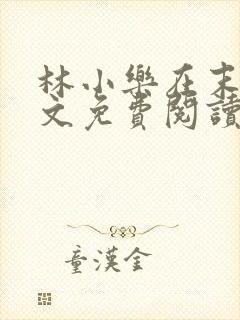 林小樂在末
文免費閱讀
童漢金